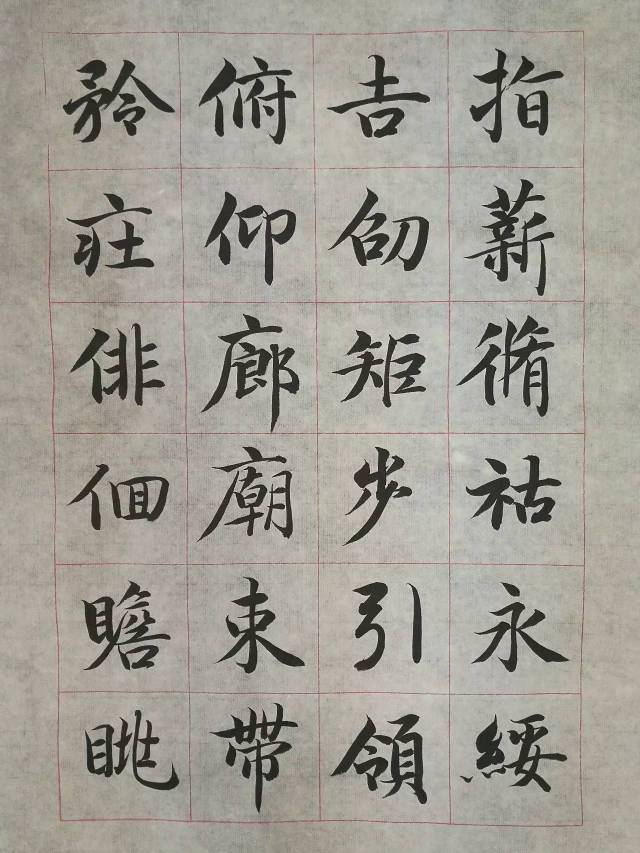 指薪脩祜永綏
吉劭矩步引領
俯仰廊廟束帶
矜莊俳佪瞻眺